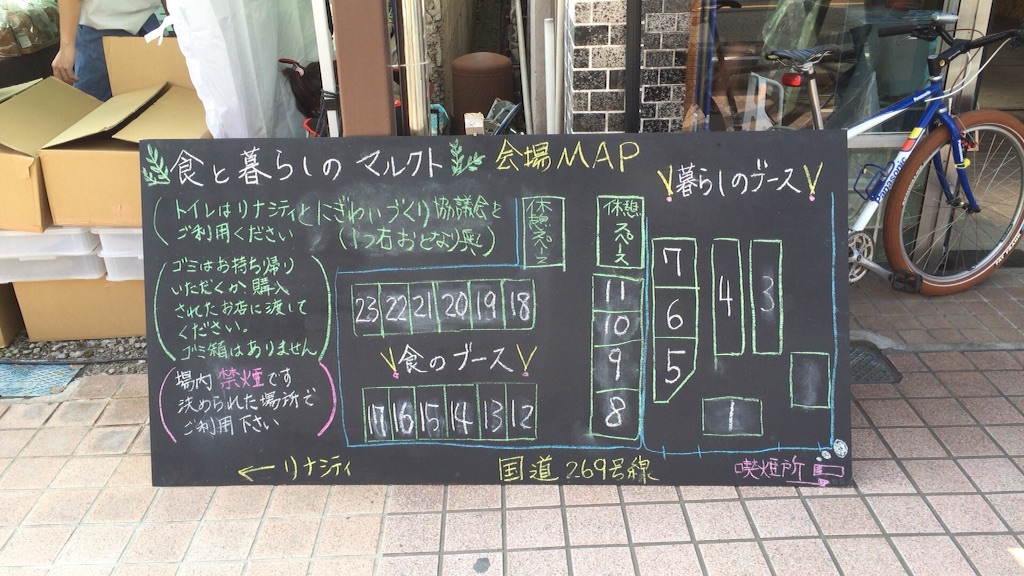 食と暮らしの マルクト 会場MAP
トイレはリナシティとにぎわいづくり協議会を
ご利用ください (1つ右おとなり奥)
ゴミはお持ち帰り
いただくか購入
されたお店に渡して
ください。
ゴミ箱はありません
場内禁煙です
決められた場所で
ご利用下さい
休憩スペース
休憩スペース
暮らしのブース
23 22 21 20 19 18
食のブース
17 16 15 14 13 12
11
10
9
8
7
6
5
4
3
1
← リナシティ
国道269号線
喫煙所
Panasonic